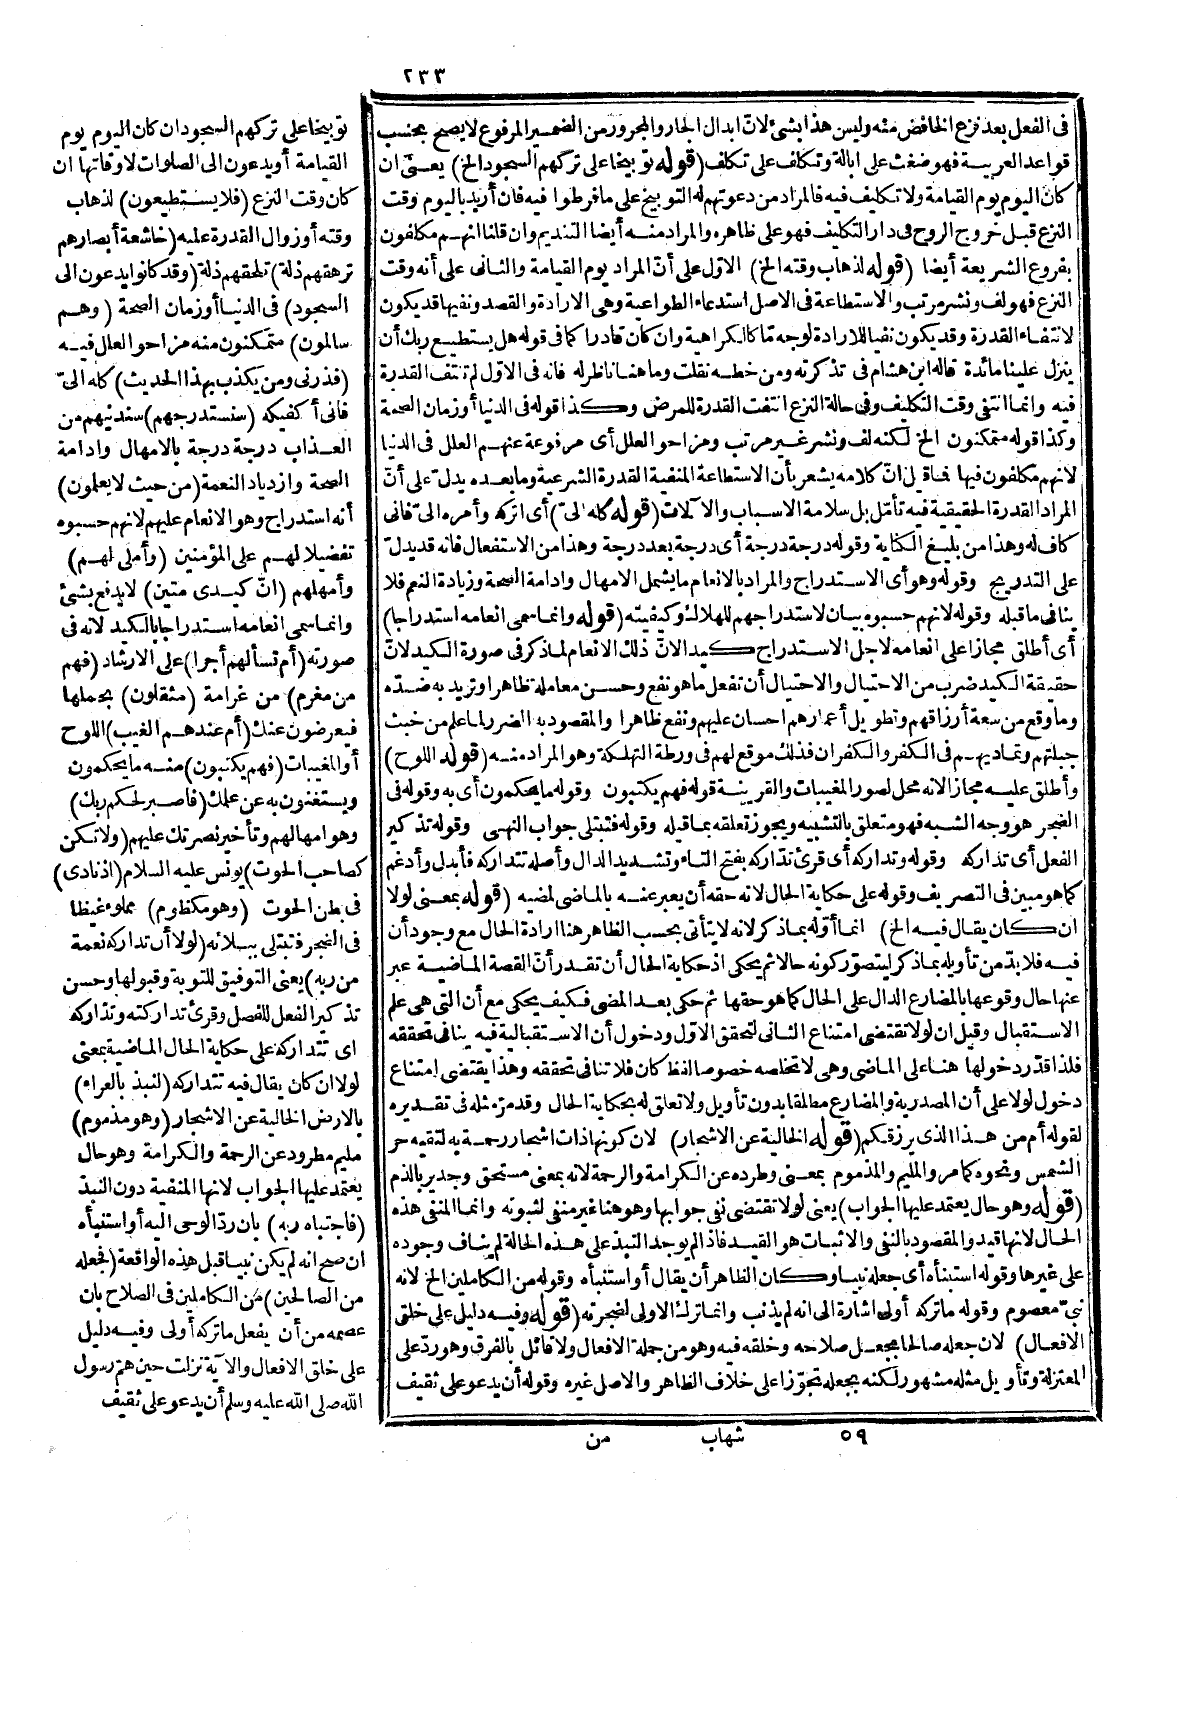 ٢٣٣
فى الفعل بعد نزع الخافض منه وليس هذا بشئ لانّ ابدال الجار والمجرور من الضمير المرفوع لا يصح بحسب
قواعد العربية فهو ضغث على ابالة وتكلف على تكلف (قوله توبيخا على تركهم السجود الخ) يعنى ان
كان اليوم يوم القيامة ولا تكليف فيه فالمراد من دعوتهم له التوبيخ على ما فرطوا فيه فان أريد باليوم وقت
النزع قبل خروج الروح فى دار التكليف فهو على ظاهره والمراد منه أيضا التنديم وان قلنا انهم مكلفون
بفروع الشريعة أيضا (قوله لذهاب وقته الخ) الاوّل على أنّ المراد يوم القيامة والثانى على أنه وقت
النزع فهو لف ونشر مرتب والاستطاعة فى الاصل استدعاء الطواعية وهى الارادة والقصد ونفيها قد يكون
لانتفاء القدرة وقد يكون نفيا للارادة لوجه ما كالكراهية وان كان قادرا كما فى قوله هل يستطيع ربك أن
ينزل علينا مائدة قاله ابن هشام فى تذكرته ومن خطه نقلت وما هنا ناظر له فانه فى الاوّل لم تنتف القدرة
فيه وانما انتفى وقت التكليف وفى حالة النزع انتفت القدرة للمرض وكذا قوله فى الدنيا أو زمان الصحة
وكذا قوله متمكنون الخ لكنه لف ونشر غير مرتب ومزاحو العلل أى مرفوعة عنهم العلل فى الدنيا
لانهم مكلفون فيها فما قيل انّ كلامه يشعر بأن الاستطاعة المنفية القدرة الشرعية وما بعده يدلّ على أنّ
المراد القدرة الحقيقية فيه تأمّل بل سلامة الاسباب والآلات (قوله كله الىّ) أى اتركه وأمره الىّ فانى
كاف له وهذا من بليغ الكناية وقوله درجة درجة أى درجة بعد درجة وهذا من الاستفعال فانه قد يدلّ
على التدريج وقوله وهو أى الاستدراج والمراد بالانعام ما يشمل الامهال وادامة الصحة وزيادة النعم فلا
ينافى ما قبله وقوله لانهم حسبوه بيان لاستدراجهم للهلاك وكيفيته (قوله وانما سمى انعامه استدراجا)
أى أطلق مجازا على انعامه لاجل الاستدراج كيد الانّ ذلك الانعام لما ذكر فى صورة الكيد لانّ
حقيقة الكيد ضرب من الاحتيال والاحتيال أن تفعل ما هو نفع وحسن معاملة ظاهرا وتريد به ضدّه
وما وقع من سعة أرزاقهم وتطويل أعمارهم احسان عليهم ونفع ظاهرا والمقصود به الضرر لما علم من خبث
جبلتهم وتماديهم فى الكفر والكفران فذلك موقع لهم فى ورطة التهلكة وهو المراد منه (قوله اللوح)
وأطلق عليه مجازا لانه محل لصور المغيبات والقرينة قوله فهم يكتبون وقوله ما يحكمون أى به وقوله فى
الضجر هو وجه الشبه فهو متعلق بالتشبيه ويجوز تعلقه بما قبله وقوله فتبتلى جواب النهى وقوله تذكير
الفعل أى تداركه وقوله وتداركه أى قرئ تدّاركه بفتح التاء وتشديد الدال وأصله تتداركه فأبدل وأدغم
كما هو مبين فى التصريف وقوله على حكاية الحال لانه حقه أن يعبر عنه بالماضى لمضيه (قوله بمعنى لولا
ان كان يقال فيه الخ) انما أوّله بما ذكر لانه لا يتأتى بحسب الظاهر هنا ارادة الحال مع وجود أن
فيه فلا بدّ من تأويله بما ذكر ليتصوّر كونه حالا ثم يحكى اذ حكاية الحال أن تقدر أنّ القصة الماضية عبر
عنها حال وقوعها بالمضارع الدال على الحال كما هو حقها ثم حكى بعد المضى فكيف يحكى مع أن التى هى علم
الاستقبال وقيل ان لولا تقتضى امتناع الثانى لتحقق الاوّل ودخول أن الاستقبالية فيه ينافى تحققه
فلذا قدّر دخولها هنا على الماضى وهى لا تخلصه خصوصا لفظ كان فلا تنافى تحققه وهذا يقتضى امتناع
دخول لولا على أن المصدرية والمضارع مطلقا بدون تأويل ولا تعلق له بحكاية الحال وقد مرّ مثله فى تقديره
لقوله أم من هذا الذى يرزقكم (قوله الخالية عن الاشجار) لان كونها ذات اشجار رحمة به لتقيه حر
الشمس ونحوه كما مر والمليم والمذموم بمعنى وطرده عن الكرامة والرحمة لانه بمعنى مستحق وجدير بالذم
(قوله وهو حال يعتمد عليها الجواب) يعنى لولا تقتضى نفى جوابها وهو هنا غير منفى لثبوته وانما المنفى هذه
الحال لانها قيد والمقصود بالنفى والاثبات هو القيد فاذا لم يوجد النبذ على هذه الحالة لم يناف وجوده
على غيرها وقوله استنبأه أى جعله نبيا وكان الظاهر أن يقال أو استنبأه وقوله من الكاملين الخ لانه
نبىّ معصوم وقوله ما تركه أولى اشارة الى انه لم يذنب وانما ترك الاولى لضجرته (قوله وفيه دليل على خلق
الافعال) لان جعله صالحا بجعل صلاحه وخلقه فيه وهو من جملة الافعال ولا قائل بالفرق وهو ردّ على
المعتزلة وتأويل مثله مشهور لكنه يجعله تجوّزا على خلاف الظاهر والاصل غيره وقوله أن يدعو على ثقيف
توبيخا على تركهم السجود ان كان اليوم يوم
القيامة أو يدعون الى الصلوات لاوقاتها ان
كان وقت النزع (فلا يستطيعون) لذهاب
وقته أو زوال القدرة عليه (خاشعة أبصارهم
ترهقهم ذلة) تلحقهم ذلة (وقد كانوا يدعون الى
السجود) فى الدنيا أو زمان الصحة (وهم
سالمون) متمكنون منه مزاحو العلل فيه
(فذرنى ومن يكذب بهذا الحديث) كله الىّ
فانى أكفيكه (سنستدرجهم) سندنيهم من
العذاب درجة درجة بالامهال وادامة
الصحة وازدياد النعمة (من حيث لا يعلمون)
أنه استدراج وهو الانعام عليهم لانهم حسبوه
تفضيلا لهم على المؤمنين (وأملى لهم)
وأمهلهم (انّ كيدى متين) لا يدفع بشئ
وانما سمى انعامه استدراجا بالكيد لانه فى
صورته (أم تسألهم أجرا) على الارشاد (فهم
من مغرم) من غرامة (مثقلون) بحملها
فيعرضون عنك (أم عندهم الغيب) اللوح
أو المغيبات (فهم يكتبون) منه ما يحكمون
ويستغنون به عن علمك (فاصبر لحكم ربك)
وهو امهالهم وتأخير نصرتك عليهم (ولا تكن
كصاحب الحوت) يونس عليه السلام (اذ نادى)
فى بطن الحوت (وهو مكظوم) مملوء غيظا
فى الضجر فتبتلى ببلائه (لولا أن تداركه نعمة
من ربه) يعنى التوفيق للتوبة وقبولها وحسن
تذكير الفعل للفصل وقرئ تداركته وتداركه
اى تتداركه على حكاية الحال الماضية بمعنى
لولا ان كان يقال فيه تتداركه (لنبذ بالعراء)
بالارض الخالية عن الاشجار (وهو مذموم)
مليم مطرود عن الرحمة والكرامة وهو حال
يعتمد عليها الجواب لانها المنفية دون النبذ
(فاجتباه ربه) بان ردّ الوحى اليه أو استنبأه
ان صح انه لم يكن نبيا قبل هذه الواقعة (فجعله
من الصالحين) من الكاملين فى الصلاح بان
عصمه من أن يفعل ما تركه أولى وفيه دليل
على خلق الافعال والآية نزلت حين هم رسول
الله صلى الله عليه وسلم أن يدعو على ثقيف
٥٩ شهاب من